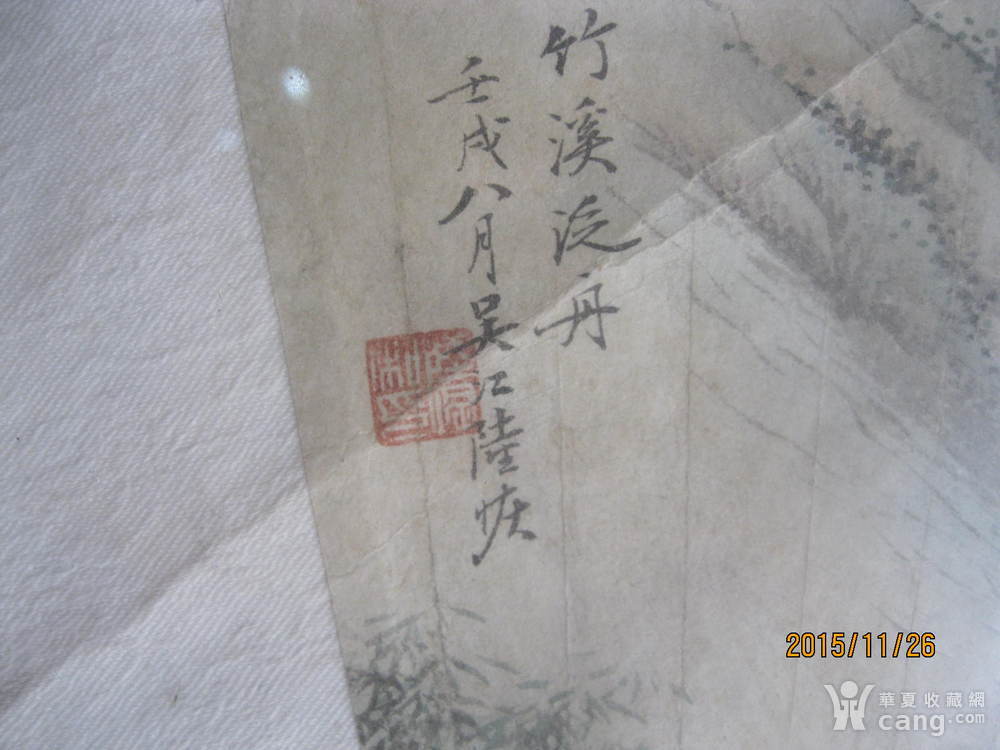 竹溪泛舟
壬戌八月吴江陸恢
2015/11/26
華夏收藏網
cang.com